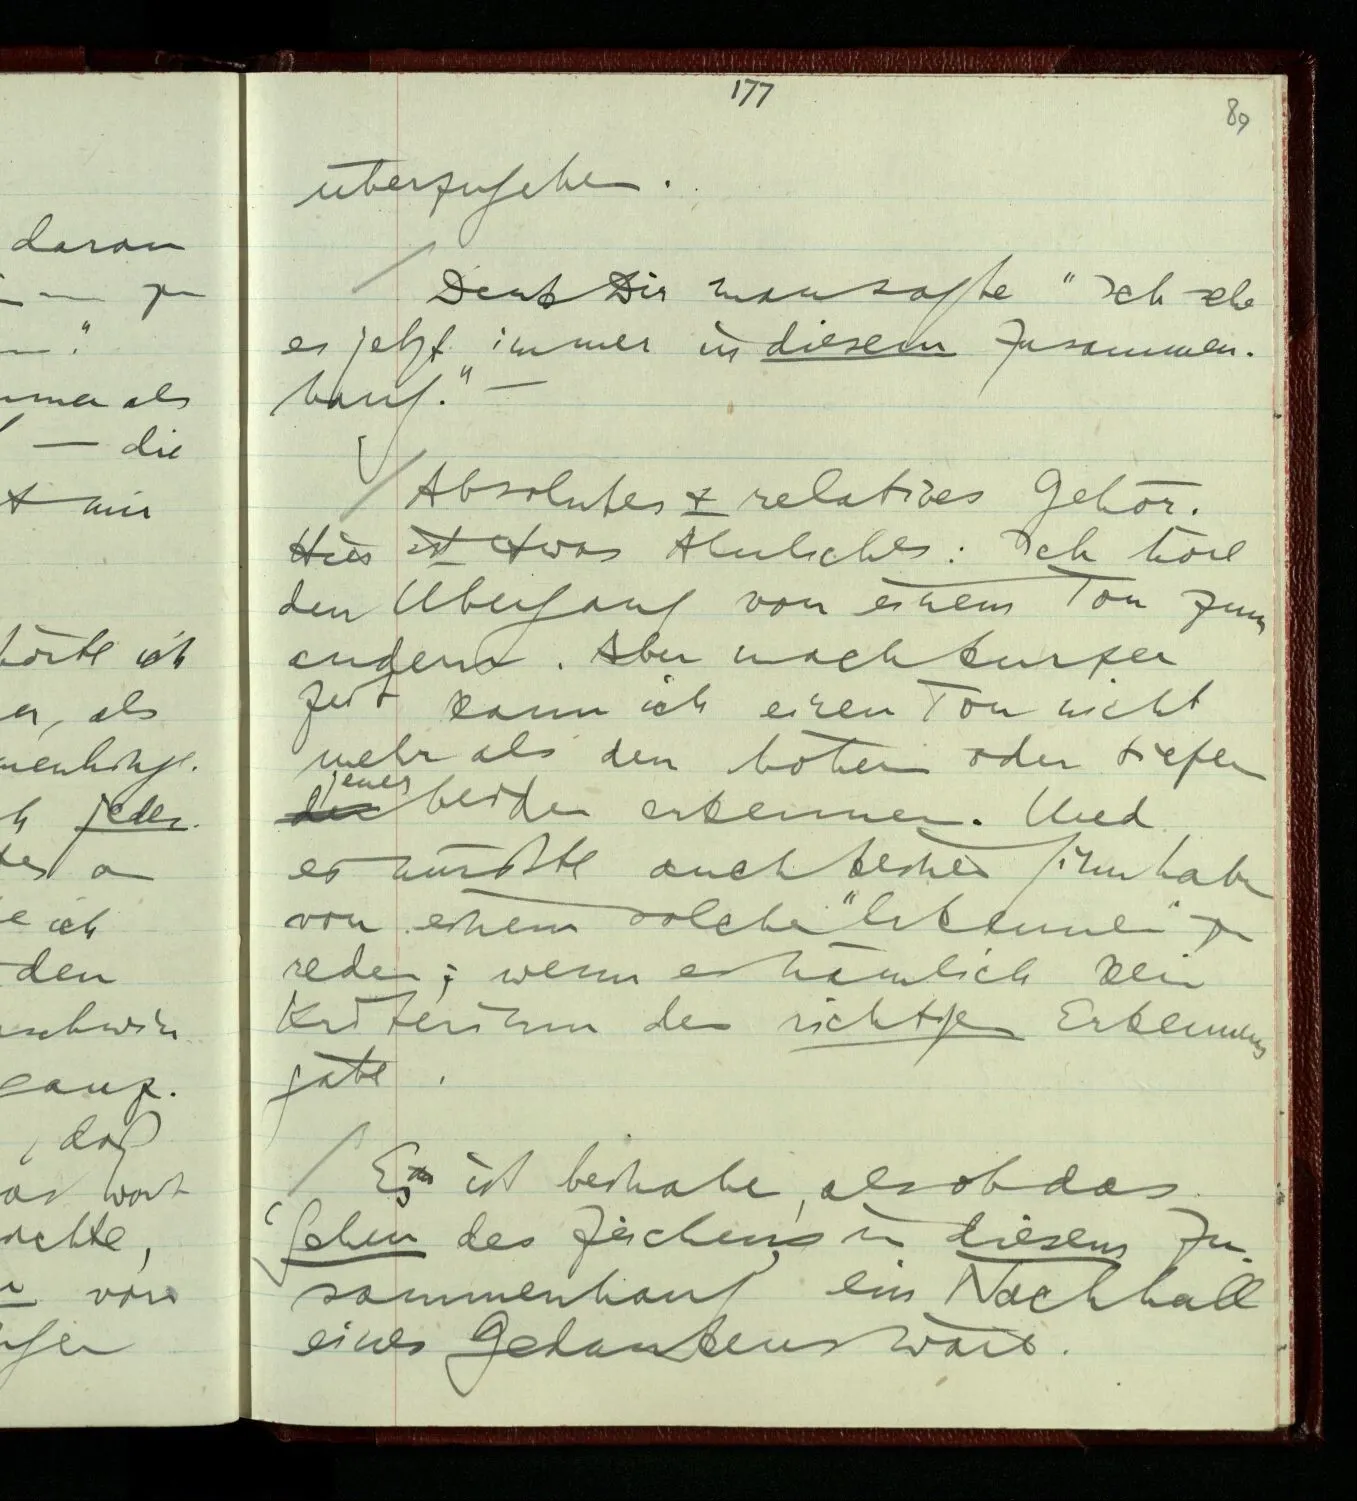 177
89
daran
überzugehen.
Denk Dir man sagte "Ich sehe
es jetzt immer in diesem Zusammen-
hang." —
Absolutes & relatives Gehör.
Hier ist etwas Ähnliches: Ich höre
den Übergang von einem Ton zum
andern. Aber nach kurzer
Zeit kann ich einen Ton nicht
mehr als den hohen oder tiefen
der jener beiden erkennen. Und
es müßte auch keinen Sinn haben
von einem solchen "Erkennen" zu
reden; wenn es nämlich kein
Kriterium des richtigen Erkennens
gäbe.
Es ist beinahe, als ob das
'Sehen des Zeichens in diesem Zu-
sammenhang' ein Nachhall
eines Gedankens wäre.
als
— die
mir
hörte ich
als
jeder
ich
den
ganz.
, daß
wort
von